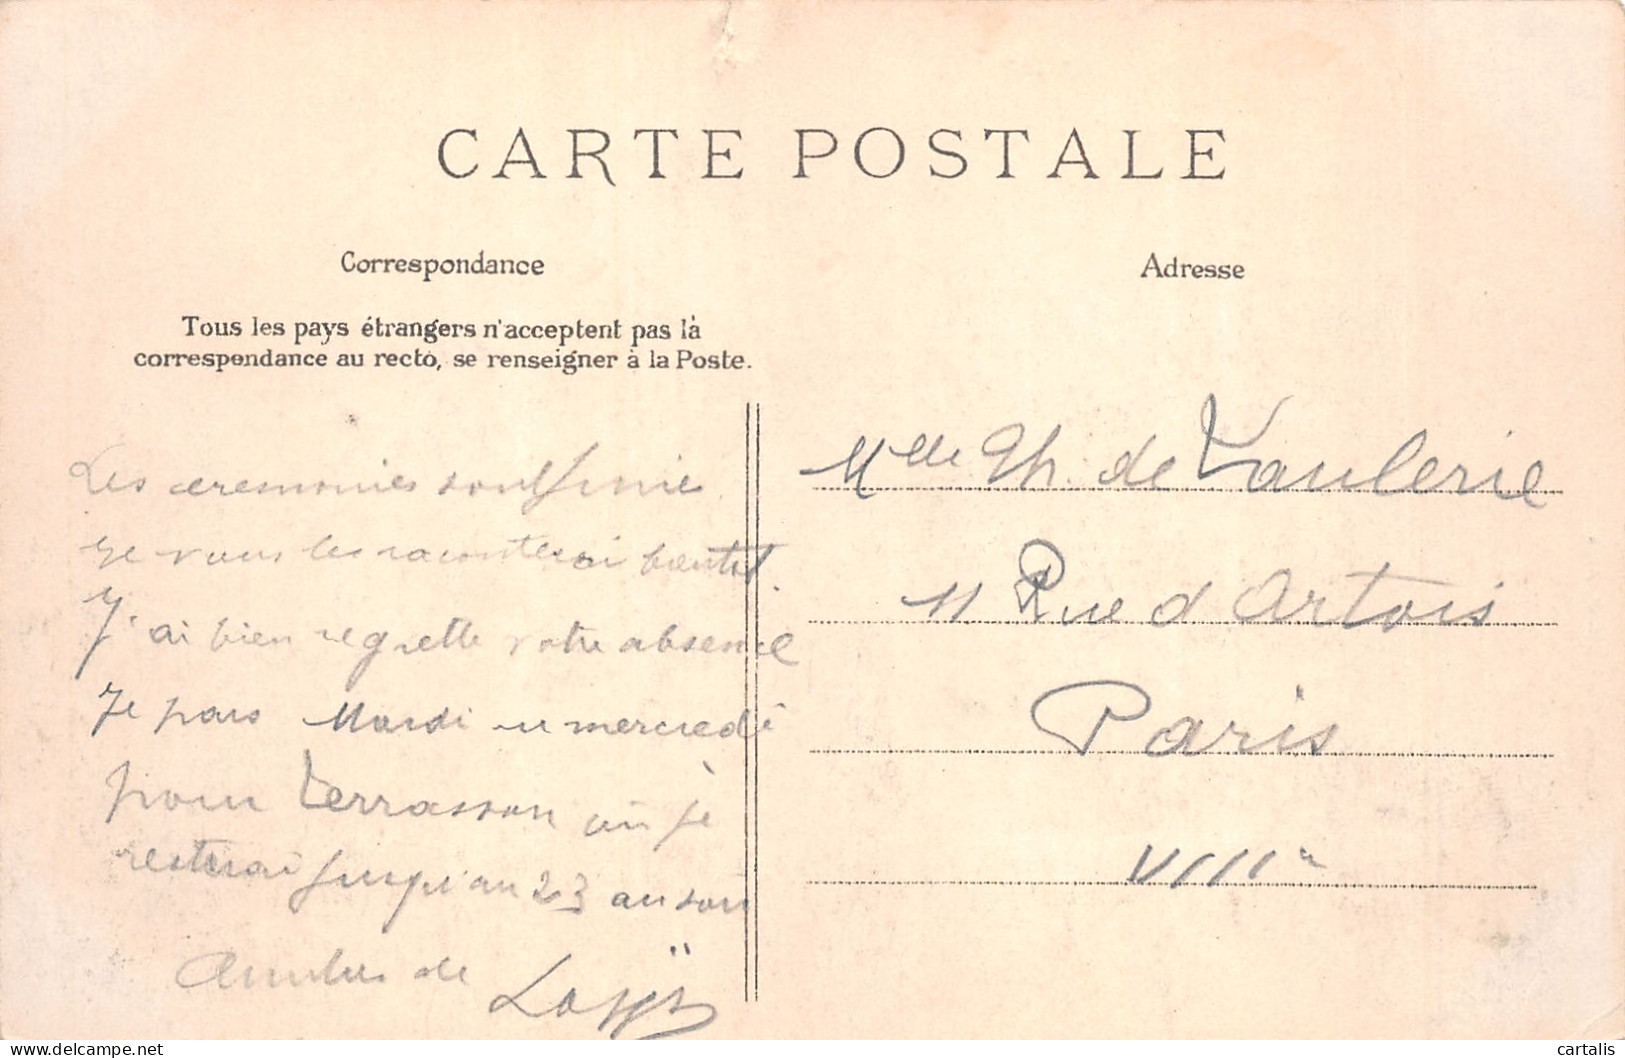 CARTE POSTALE
Correspondance
Tous les pays étrangers n'acceptent pas la
correspondance au recto, se renseigner à la Poste.
Les ceremonies sont finies
Je vous les raconterai bientot.
J'ai bien regretté votre absence
Je pars Mardi ou mercredi
pour Terrasson où je
resterai jusqu'au 23 au soir
de
Adresse
Mlle Th. de Vaulerie
11 Rue d'Artois
Paris
VIIIe
cartalis
delcampe.net